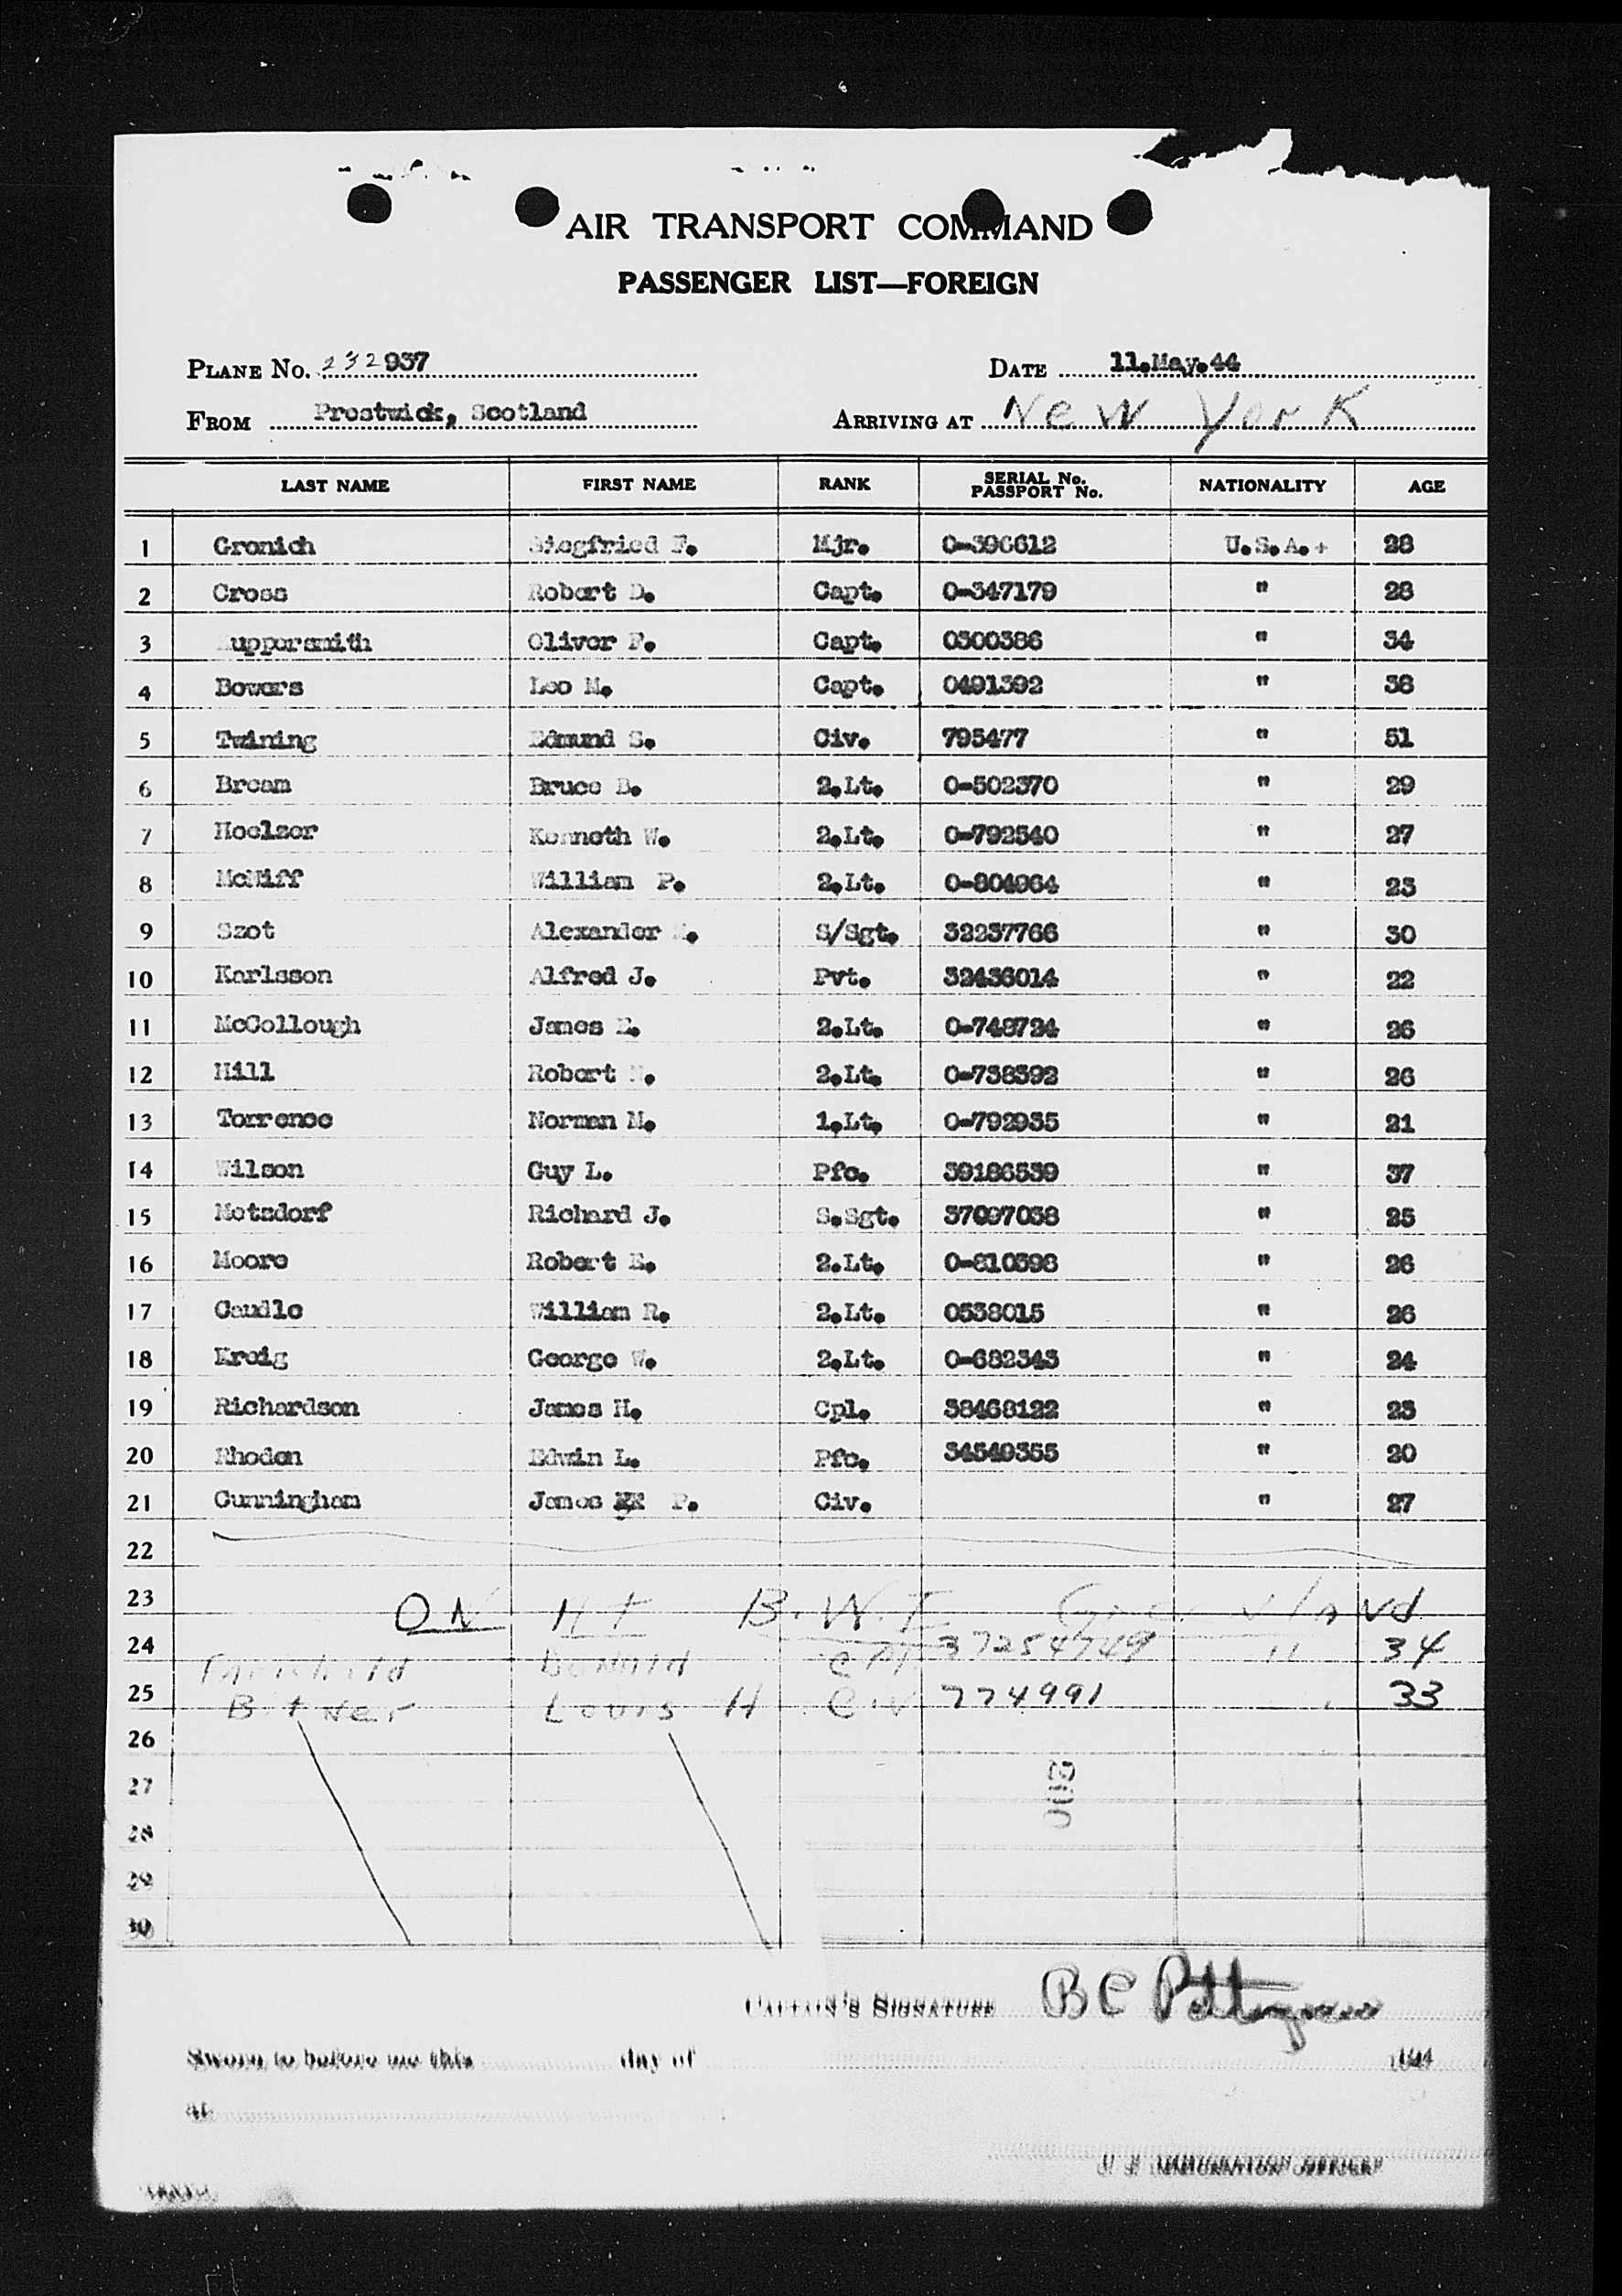 AIR TRANSPORT COMMAND
PASSENGER LIST—FOREIGN
PLANE No. 232937 DATE 11.May.44
FROM Prestwick, Scotland ARRIVING AT New York
LAST NAME FIRST NAME RANK SERIAL No. PASSPORT No. NATIONALITY AGE
1 Gronich Siegfried F. Mjr. 0-396612 U.S.A.+ 28
2 Cross Robert D. Capt. 0-347179 " 28
3 uppersmith Oliver F. Capt. 0300386 " 34
4 Bowers Leo M. Capt. 0491392 " 38
5 Twining Edmund S. Civ. 795477 " 51
6 Bream Bruce B. 2.Lt. 0-502370 " 29
7 Hoelzer Kenneth W. 2.Lt. 0-792540 " 27
8 McNiff William P. 2.Lt. 0-804964 " 23
9 Szot Alexander S/Sgt. 32237766 " 30
10 Karlsson Alfred J. Pvt. 32436014 " 22
11 McCollough James E. 2.Lt. 0-748724 " 26
12 Hill Robert 2.Lt. 0-738392 " 26
13 Torrence Norman M. 1.Lt. 0-792935 " 21
14 Wilson Guy L. Pfc. 39186539 " 37
15 Metzdorf Richard J. S.Sgt. 37097038 " 25
16 Moore Robert E. 2.Lt. 0-810398 " 26
17 Caudle William R. 2.Lt. 0538015 " 26
18 Kreig George W. 2.Lt. 0-682343 " 24
19 Richardson James H. Cpl. 38468122 " 23
20 Rhoden Edwin L. Pfc. 34549355 " 20
21 Cunningham James P. Civ. " 27
22
23 ON AT B.W.I. Greenland
24 Fairchild Donald Cpl 37254749 " 34
25 Bitner Louis H Civ 774991 33
26
27
28
29
30
CAPTAIN'S SIGNATURE B C
Sworn to before me this day of 194
at
U. S. IMMIGRATION OFFICER